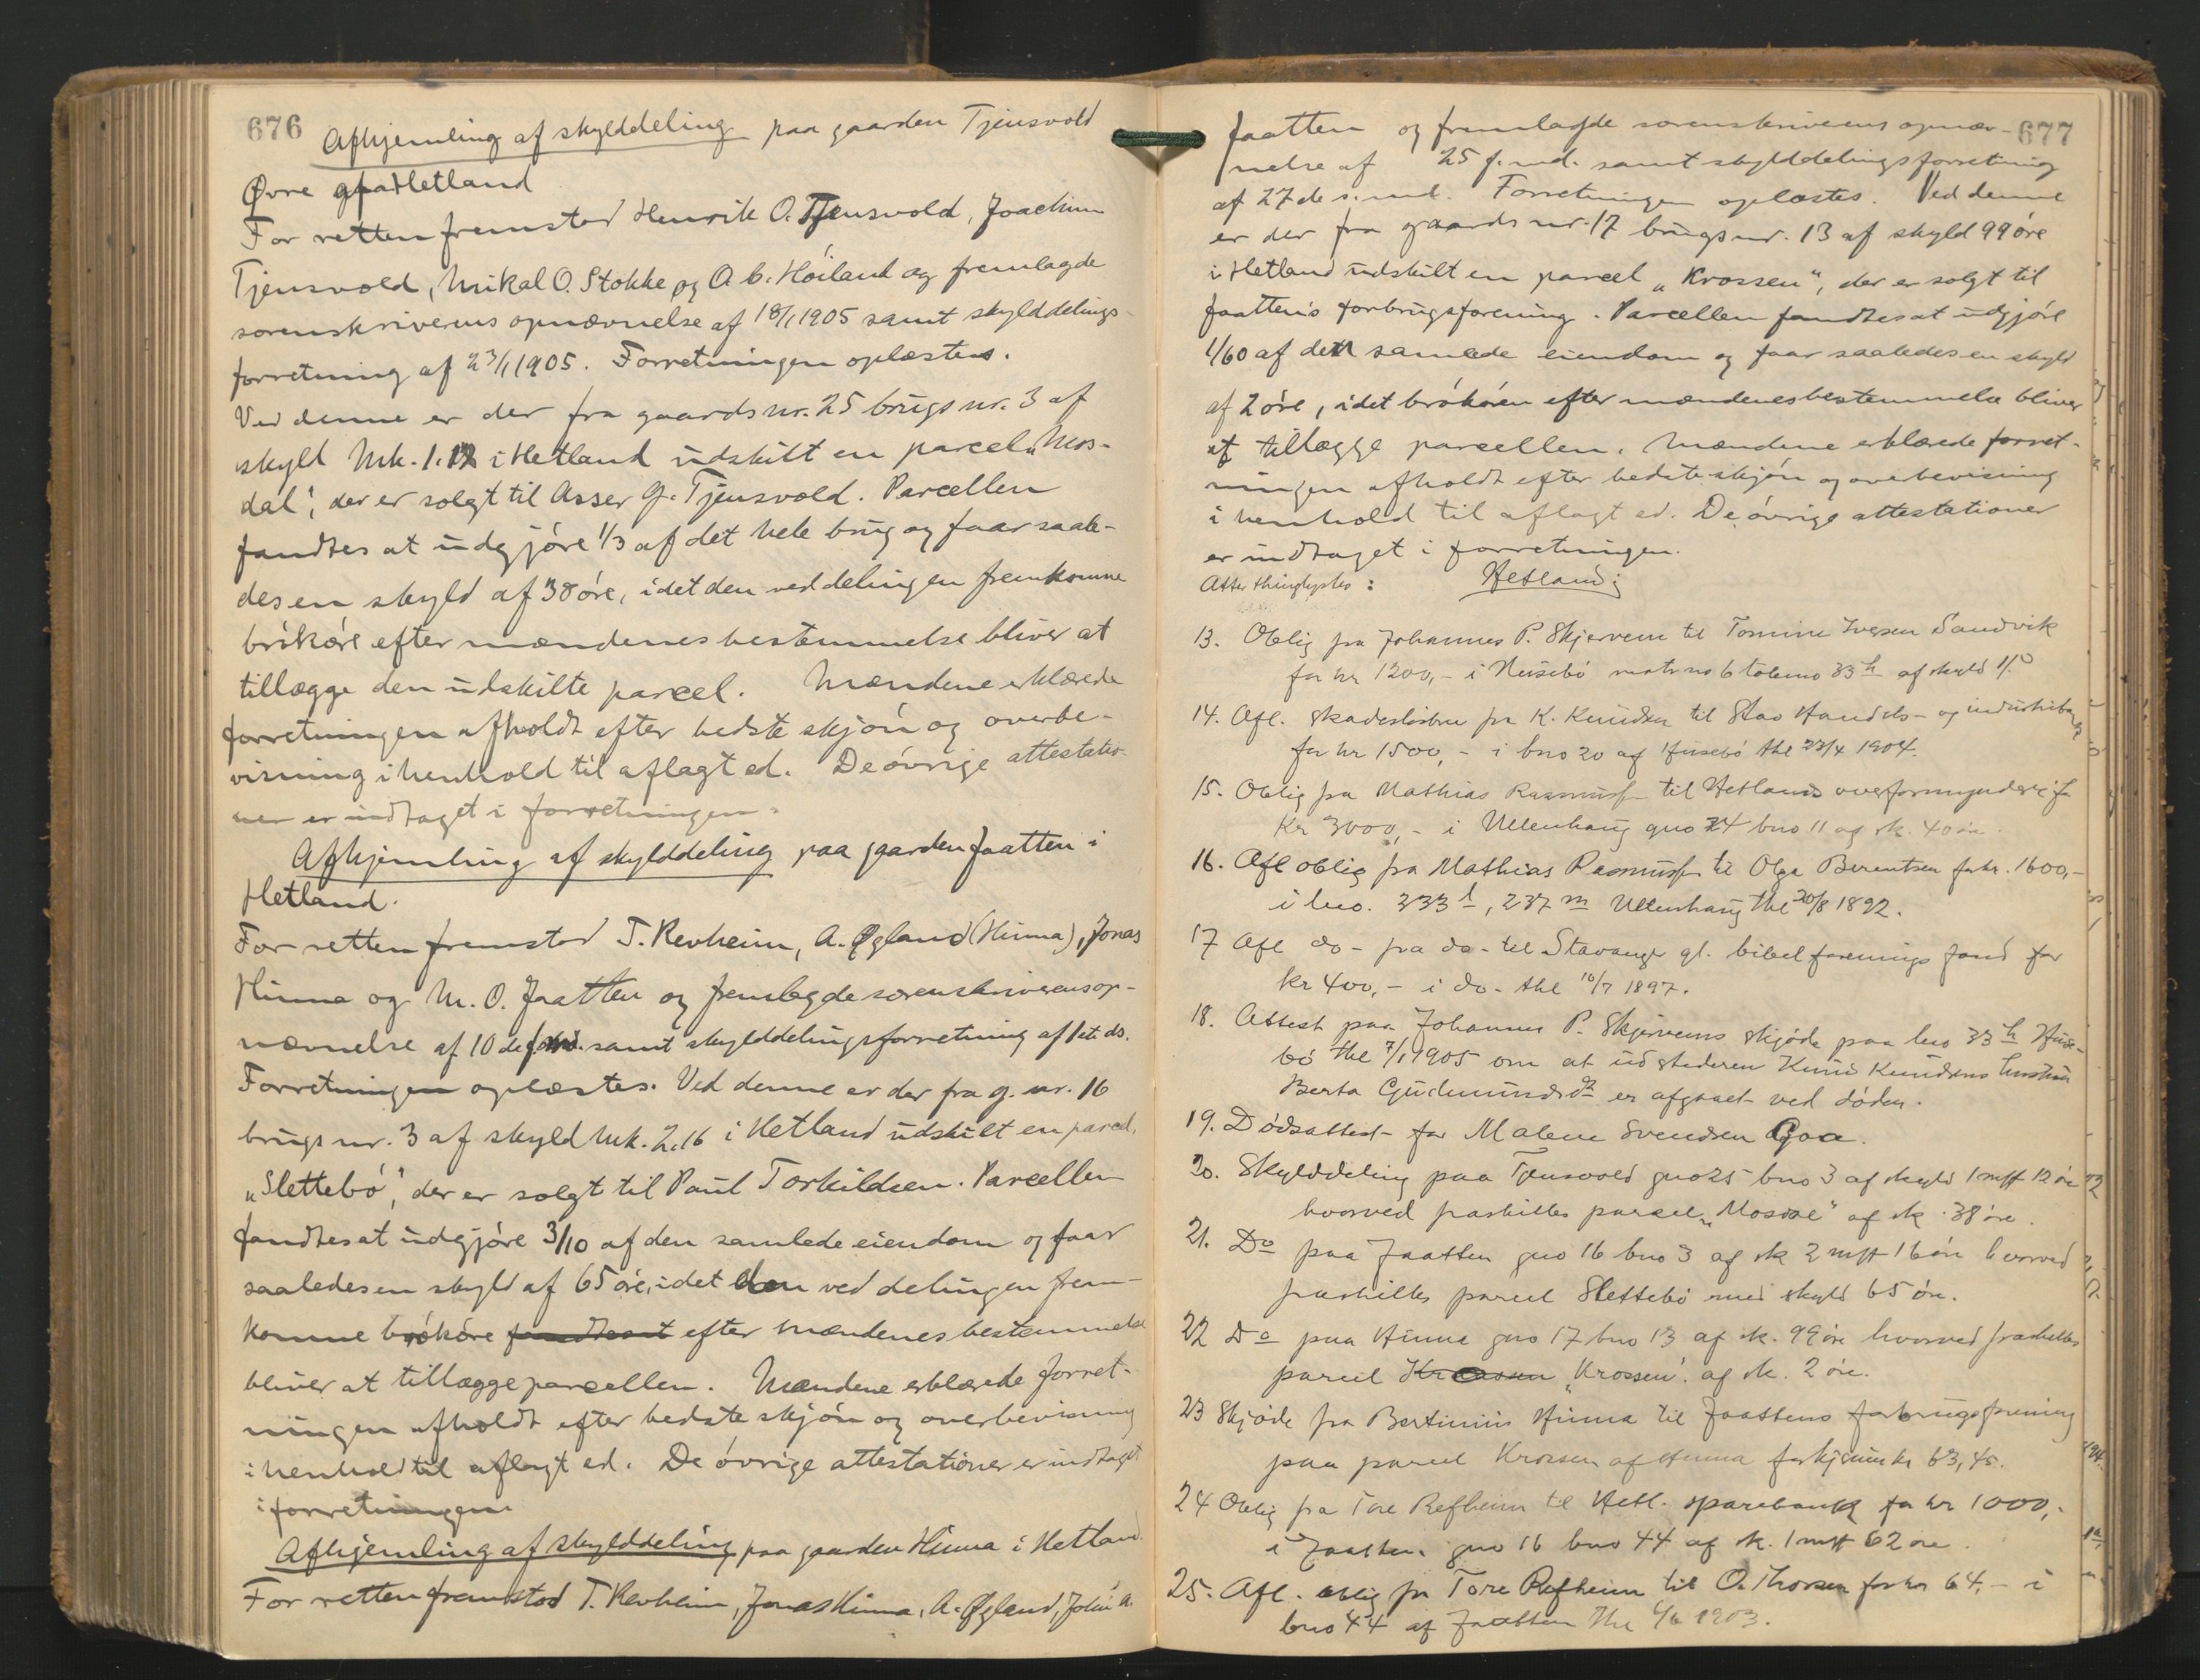 676
Afhjemling af skylddeling paa gaarden Tjensvold
Øvre Hetland
For retten fremstod Henrik O. Tjensvold, Joachim
Tjensvold, Mikal O. Stokke og A. C. Höiland og fremlagde
sorenskriverens opnævnelse af 18/1 1905 samt skylddelings-
forretning af 23/1 1905. Forretningen oplæstes.
Ved denne er der fra gaards nr. 25 brugs nr. 3 af
skyld Mk. 1.12 i Hetland udskilt en parcel „Mos-
dal“, der er solgt til Asser G. Tjensvold. Parcellen
fandtes at udgjöre 1/3 af det hele brug og faar saale-
des en skyld af 38 öre, idet den ved delingen fremkomne
brököre efter mændenes bestemmelse bliver at
tillægge den udskilte parcel. Mændene erklærede
forretningen afholdt efter bedste skjön og overbe-
visning i henhold til aflagt ed. De övrige attestatio-
ner er indtaget i forretningen.
Afhjemling af skylddeling paa gaarden Jaatten i
Hetland.
For retten fremstod T. Revheim, A. Øgland (Hinna), Jonas
Hinna og M. O. Jaatten og fremlagde sorenskriverens op-
nævnelse af 10 de samt skylddelingsforretning af 1ste ds.
Forretningen oplæstes. Ved denne er der fra g. nr. 16
brugs nr. 3 af skyld Mk. 2.16 i Hetland udskilt en parcel,
„Slettebö“, der er solgt til Paul Torkildsen. Parcellen
fandtes at udgjöre 3/10 af den samlede eiendom og faar
saaledes en skyld af 65 öre, idet den ved delingen frem-
komne brököre fandtes at efter mændenes bestemmelse
bliver at tillægge parcellen. Mændene erklærede forret-
ningen afholdt efter bedste skjön og overbevisning
i henhold til aflagt ed. De övrige attestationer er indtaget
i forretningen
Afhjemling af skylddeling paa gaarden Hinna i Hetland.
For retten fremstod T. Revheim, Jonas Hinna, A. Øgland, John A.
677
Jaatten og fremlagde sorenskriverens opnæv-
nelse af 25 f. md. samt skylddelingsforretning
af 27de s. md. Forretningen oplæstes. Ved denne
er der fra gaards nr. 17 brugs nr. 13 af skyld 99 öre
i Hetland udskilt en parcel „Krossen“, der er solgt til
Jaattens forbrugsforening. Parcellen fandtes at udgjöre
1/60 af den samlede eiendom og faar saaledes en skyld
af 2 öre, idet brökören efter mændenes bestemmelse bliver
at tillægge parcellen. Mændene erklærede forret-
ningen afholdt efter bedste skjön og overbevisning
i henhold til aflagt ed. De övrige attestationer
er indtaget i forretningen.
Atter thinglystes: Hetland:
13. Oblig fra Johannes P. Skjervem til Tomine Iversen Sandvik
for kr 1200,- i Husebö matr no 6 löbeno 33 h af skyld
14. Afl. skadeslösbrev fra K. Knudsen til Stav Handels- og industribank
for kr 1500,- i bno 20 af Husebö thl 23/4 1904.
15. Oblig fra Mathias Rasmuss. til Hetlands overformynderi for
Kr 3000,- i Ullenhaug gno 24 bno 11 af sk. 40 öre.
16. Afl oblig fra Mathias Rasmuss. til Olga Berentsen for kr. 1600,-
i lno. 233 l, 237 m Ullenhaug thl 20/8 1892.
17 Afl do - fra do - til Stavanger gl. bibelforenings fond for
kr 400,- i do - thl 10/7 1897.
18. Attest paa Johannes P. Skjervems skjöde paa lno 33 h Huse-
bö thl 7/1 1905 om at udstederen Knud Knudsens hustru
Berta Gudmundsd. er afgaaet ved döden.
19. Dödsattest for Malene Svendsen Goa.
20. Skylddeling paa Tjensvold gno 25 bno 3 af skyld 1 mk 12 öre
hvorved fraskilles parcel „Mosdal“ af sk. 38 öre.
21. Do paa Jaatten gno 16 bno 3 af sk 2 mk 16 öre hvorved
fraskilles parcel Slettebö med skyld 65 öre.
22 Do paa Hinna gno 17 bno 13 af sk. 99 öre hvorved fraskilles
parcel Krossen „Krossen“ af sk. 2 öre.
23 Skjöde fra Bertinius Hinna til Jaattens forbrugsforening
paa parcel Krossen af Hinna for kjöbesum kr 63,45.
24 Oblig fra Tore Refheim til Hetl. sparebank for kr 1000,-
i Jaatten gno 16 bno 44 af sk. 1 mk 62 öre.
25. Afl. oblig fra Tore Refheim til O. Thorsen for kr 64,- i
bno 44 af Jaatten Thl 1903.